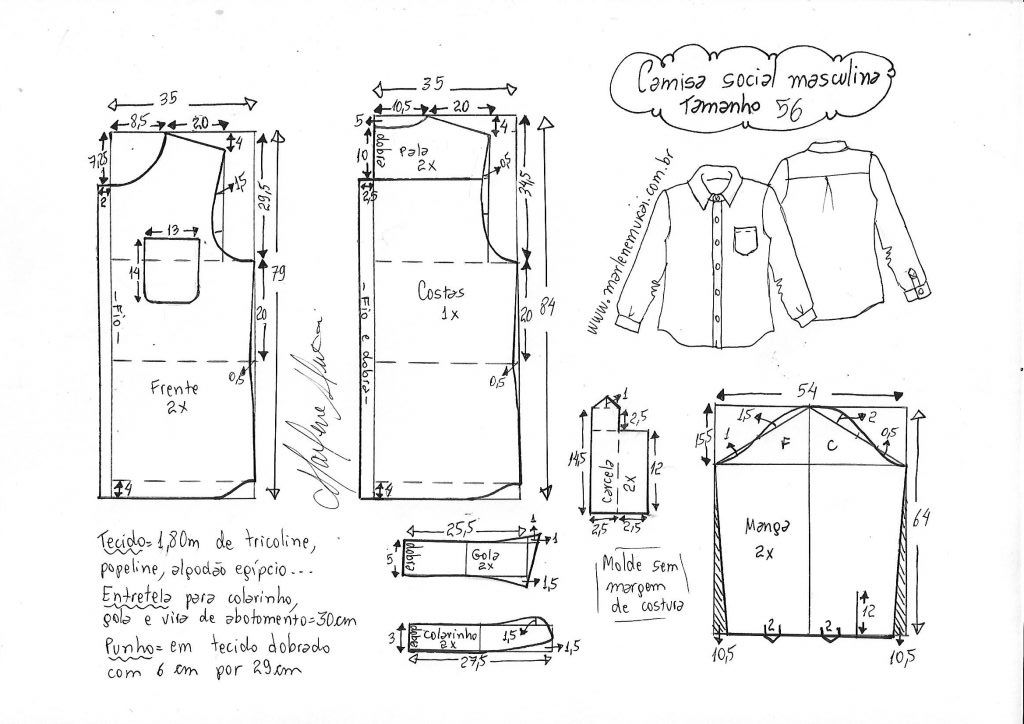 Camisa social masculina
Tamanho 56
www.marlenemukai.com.br
35
8,5
20
4
7,25
2
1,5
29,5
13
14
79
20
-Fio-
0,5
Frente
2x
4
35
10,5
20
5
4
10
dobra
Pala
2x
0,5
2,5
34,5
Costas
1x
-Fio e dobra-
20
84
0,5
4
1
2,5
14,5
12
Carcela
2x
2,5
2,5
Molde sem
margem
de costura
54
1,5
2
15,5
1
F
C
0,5
64
Manga
2x
12
2
2
10,5
10,5
25,5
1
1
dobra
5
Gola
2x
1,5
dobra
3
Colarinho
2x
1,5
1,5
27,5
Tecido=1,80m de tricoline,
popeline, algodão egípcio...
Entretela para colarinho,
gola e vira de abotoamento=30cm
Punho= em tecido dobrado
com 6 cm por 29cm